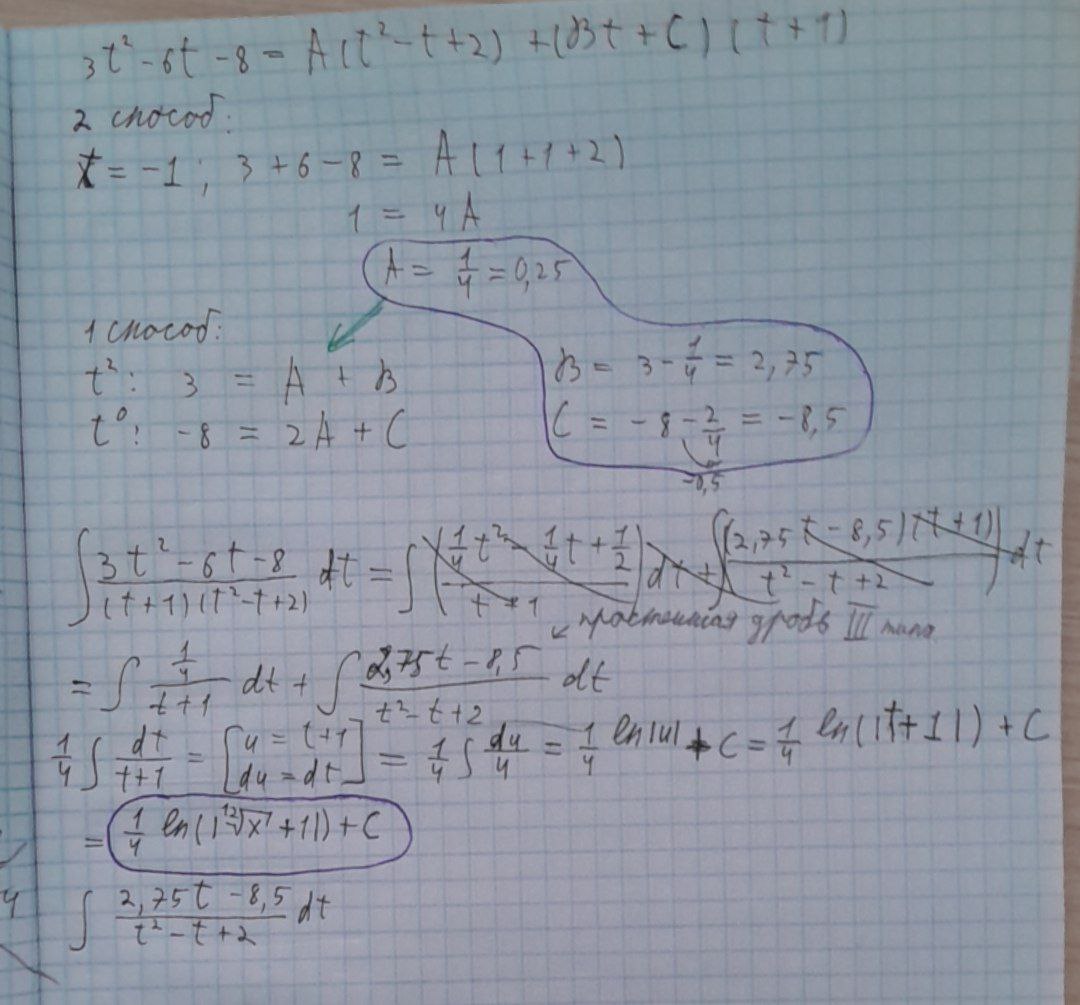 3t² - 6t - 8 = A(t² - t + 2) + (Bt + C)(t + 1)
2 способ:
t = -1; 3 + 6 - 8 = A(1 + 1 + 2)
1 = 4A
A = 1/4 = 0,25
1 способ:
t²: 3 = A + B
B = 3 - 1/4 = 2,75
t⁰: -8 = 2A + C
C = -8 - 2/4 = -8,5
-0,5
∫ (3t² - 6t - 8)/((t+1)(t² - t + 2)) dt = ∫ ((1/4 t² - 1/4 t + 1/2)/(t + 1)) dt + ∫ ((2,75t - 8,5)(t + 1))/(t² - t + 2) dt
простейшая дробь III типа
= ∫ (1/4)/(t+1) dt + ∫ (2,75t - 8,5)/(t² - t + 2) dt
1/4 ∫ dt/(t+1) = [u = t+1, du = dt] = 1/4 ∫ du/u = 1/4 ln|u| + C = 1/4 ln(|t+1|) + C
= 1/4 ln(|¹²√x + 1|) + C
4
∫ (2,75t - 8,5)/(t² - t + 2) dt